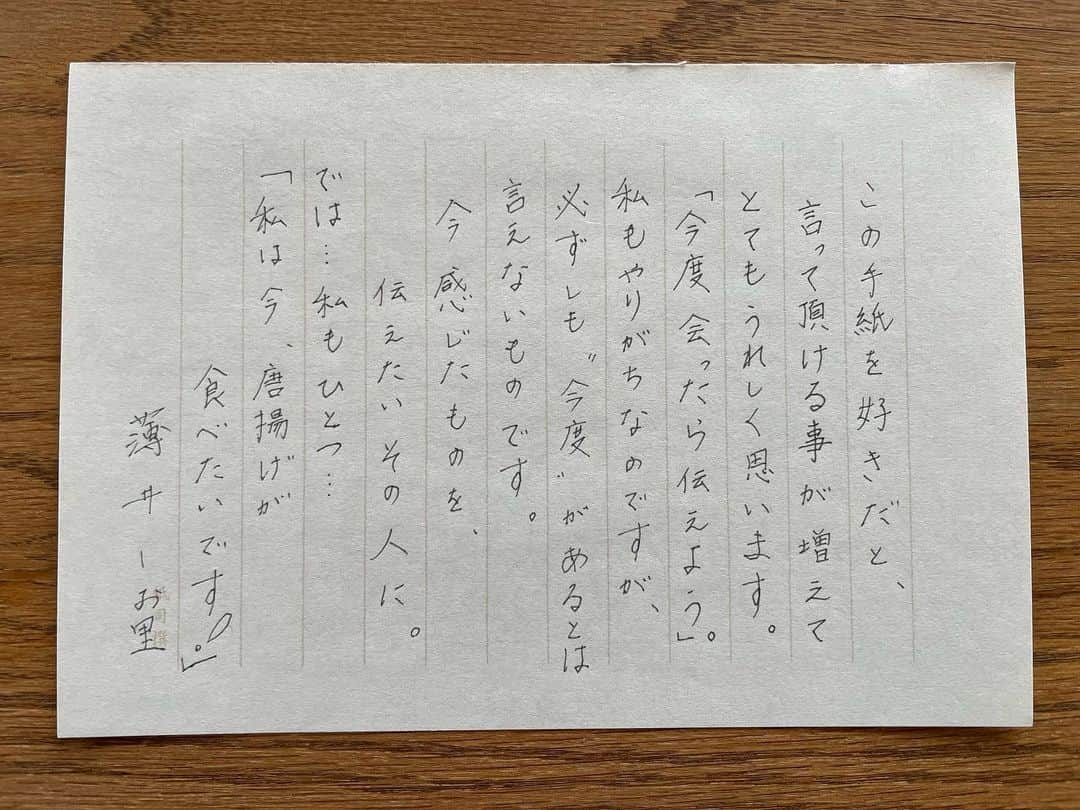 この手紙を好きだと、
言って頂ける事が増えて
とてもうれしく思います。
「今度会ったら伝えよう」。
私もやりがちなのですが、
必ずしも〝今度〟があるとは
言えないものです。
今感じたものを、
伝えたいその人に。
では…私もひとつ…
「私は今、唐揚げが
食べたいです!」
薄井しお里